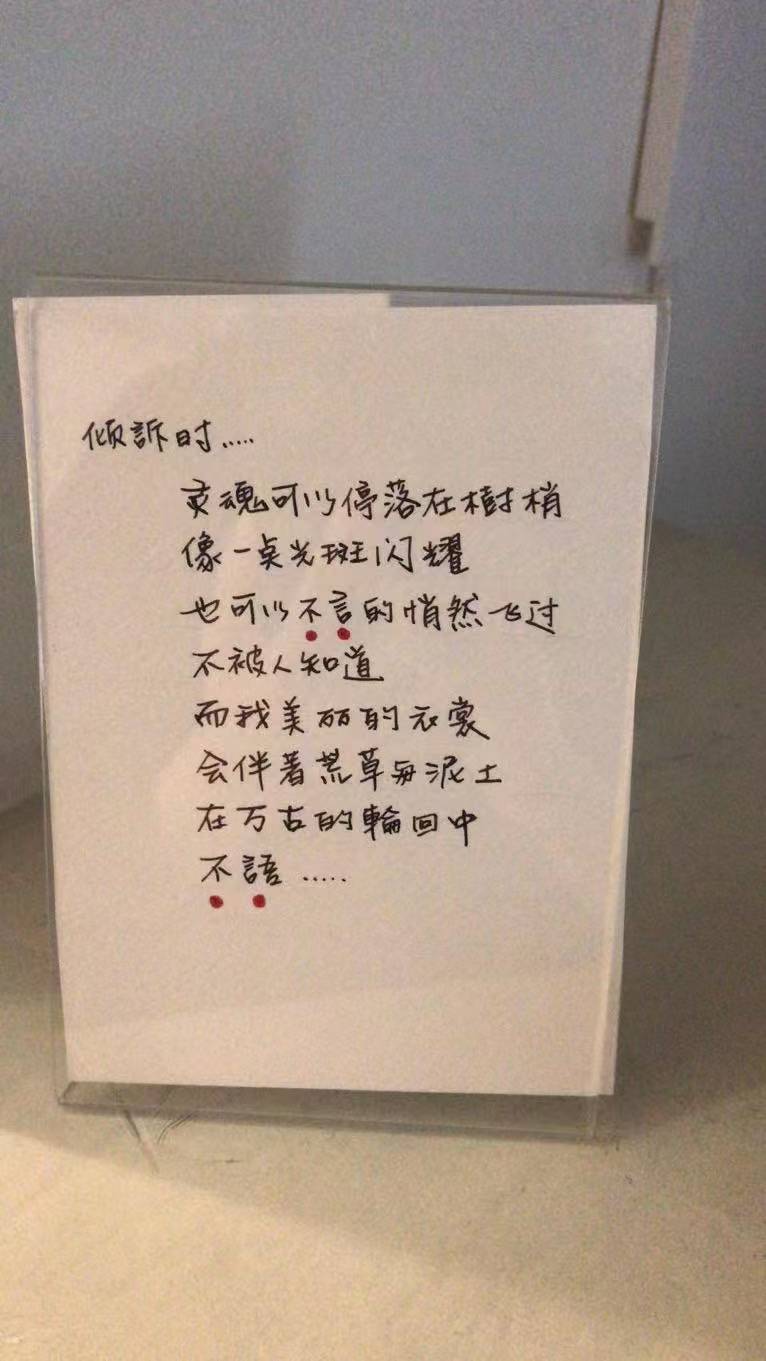 倾訴时.....
灵魂可以停落在樹梢
像一点光斑闪耀
也可以不言的悄然飞过
不被人知道
而我美丽的衣裳
会伴着荒草与泥土
在万古的輪回中
不語.....